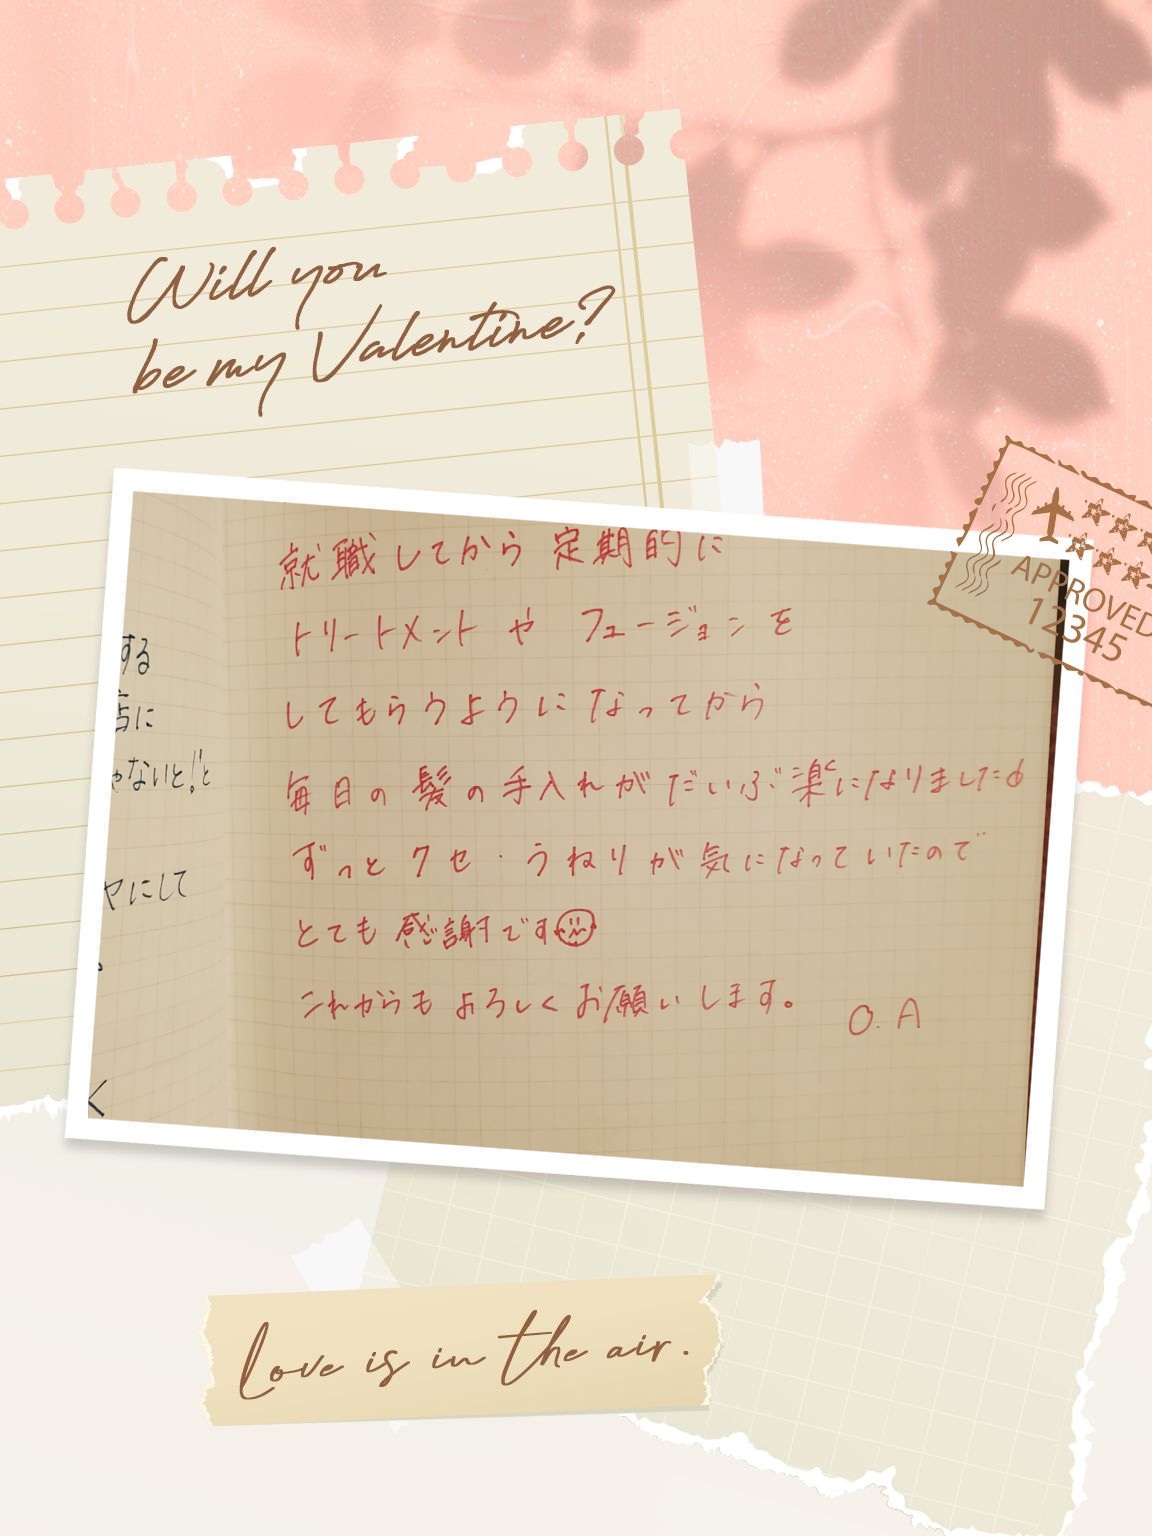 Will you
be my Valentine?
APPROVED
12345
する
店に
ゃないと!!と
ヤにして
く
就職してから 定期的に
トリートメント や フュージョン を
してもらうように なってから
毎日の 髪の手入れが だいぶ楽になりました
ずっと クセ・うねりが気になっていたので
とても 感謝です
これからも よろしく お願いします。
O.A
Love is in the air.